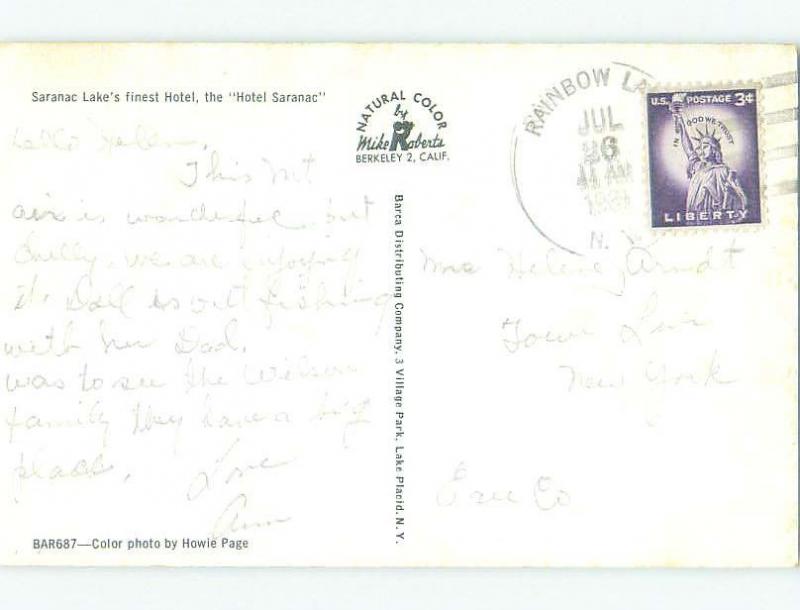 Saranac Lake's finest Hotel, the "Hotel Saranac"
Hello Helen,
This Mt
air is wonderful but
chilly. we are enjoying
it. Doll is out fishing
with her Dad.
was to see the Wilson
family they have a big
place.
Love
Ann
BAR687—Color photo by Howie Page
NATURAL COLOR
by
Mike Roberts
BERKELEY 2, CALIF.
Barca Distributing Company, 3 Village Park, Lake Placid, N.Y.
RAINBOW LA
JUL
26
AM
N.
U.S. POSTAGE 3¢
IN GOD WE TRUST
LIBERTY
Mrs Helene Arndt
Town Line
New York
Erie Co